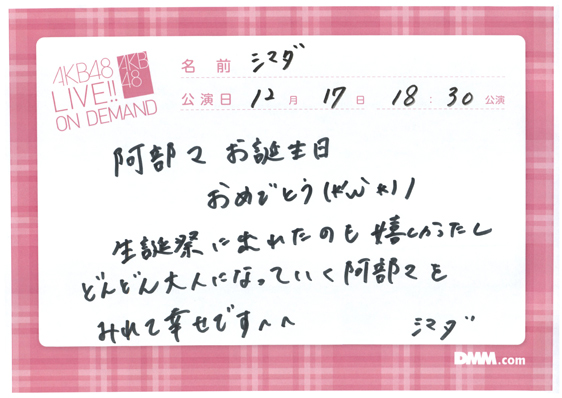 AKB48
LIVE!!
ON DEMAND
AKB
48
名前 シマダ
公演日 12月 17日 18:30 公演
阿部マ お誕生日
おめでとう(*´ω`*)ノ
生誕祭にまれたのも嬉しかったし
どんどん大人になっていく阿部マを
みれて幸せです^^
シマダ
DMM.com